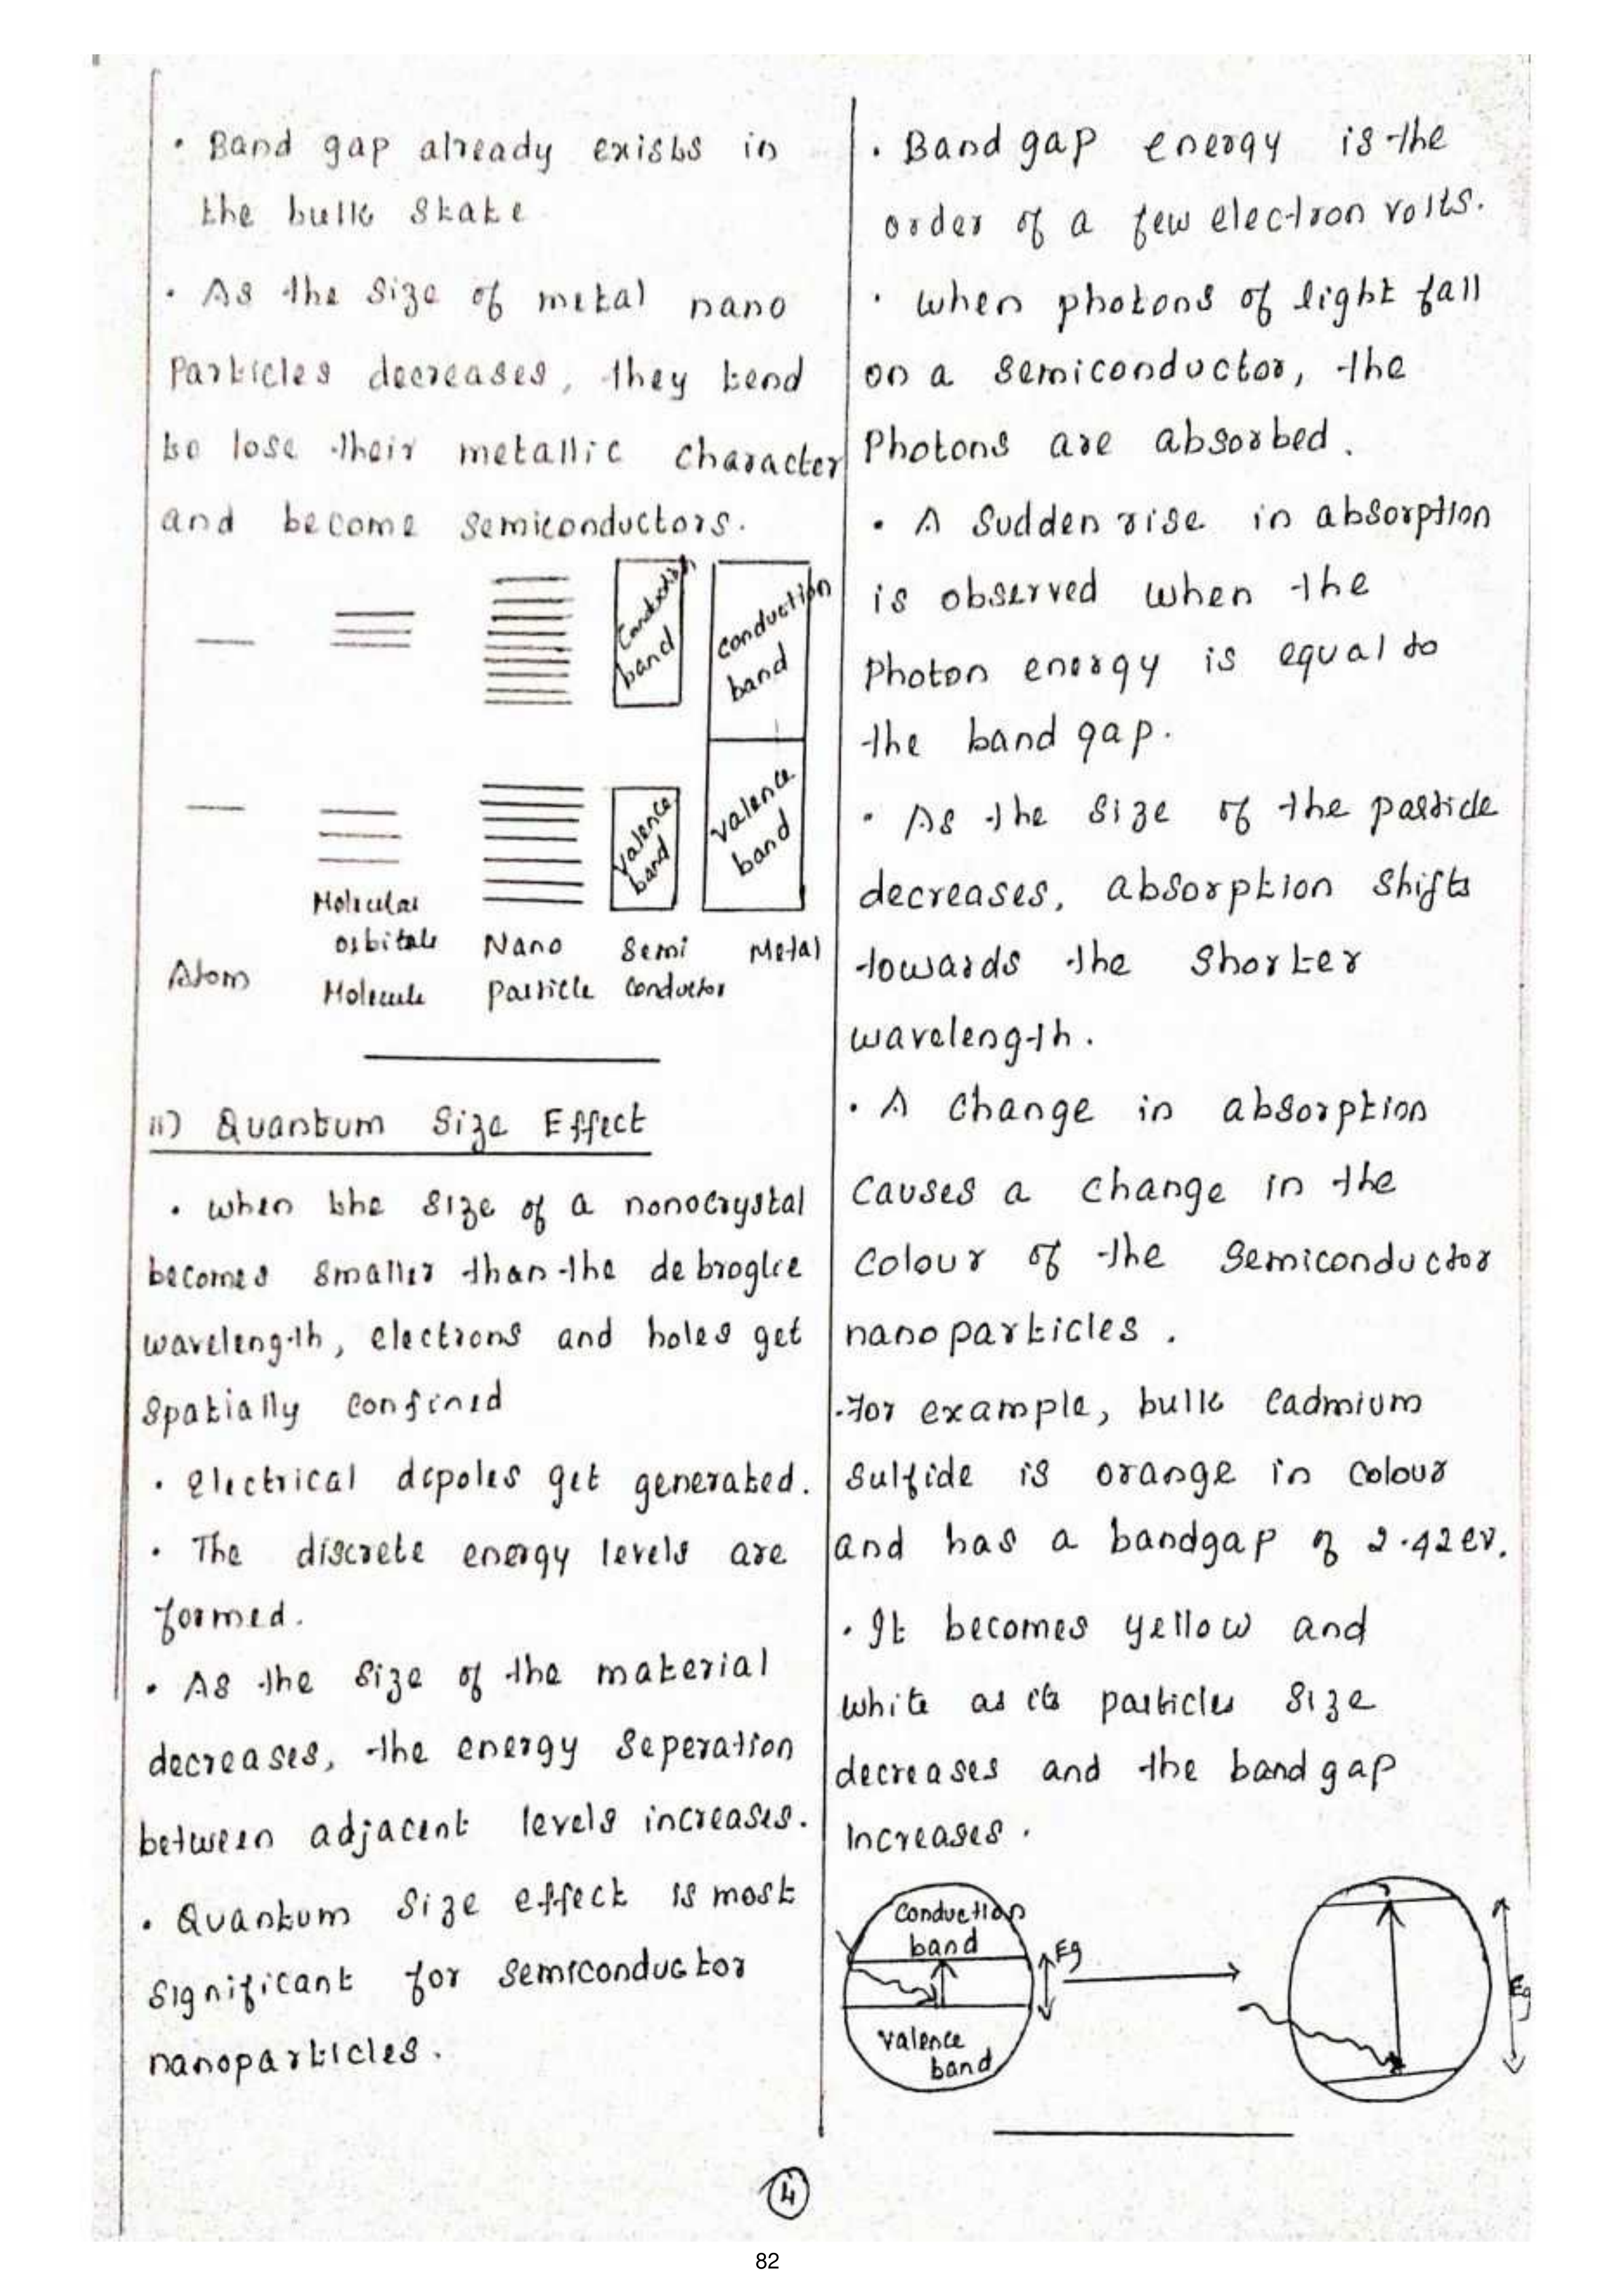 • Band gap already exists in
the bulk state
• As the size of metal nano
Particles decreases, they tend
to lose their metallic character
and become semiconductors.
Conduction
band
Conduction
band
Valence
band
Valence
band
Molecular
orbitals
Atom
Molecule
Nano
particle
Semi
conductor
Metal
ii) Quantum Size Effect
• when the size of a nonocrystal
becomes smaller than the debroglie
wavelength, electrons and holes get
spatially confined
• electrical dipoles get generated.
• The discrete energy levels are
formed.
• As the size of the material
decreases, the energy seperation
between adjacent levels increases.
• Quantum size effect is most
significant for semiconductor
nanoparticles.
• Band gap energy is the
order of a few electron volts.
• when photons of light fall
on a semiconductor, the
Photons are absorbed.
• A sudden rise in absorption
is observed when the
Photon energy is equal to
the band gap.
• As the size of the particle
decreases, absorption shifts
towards the shorter
wavelength.
• A change in absorption
causes a change in the
colour of the semiconductor
nanoparticles.
• for example, bulk cadmium
sulfide is orange in colour
and has a bandgap of 2.42ev.
• It becomes yellow and
white as its particles size
decreases and the bandgap
increases.
Conduction
band
Eg
Valence
band
Eg
4
82